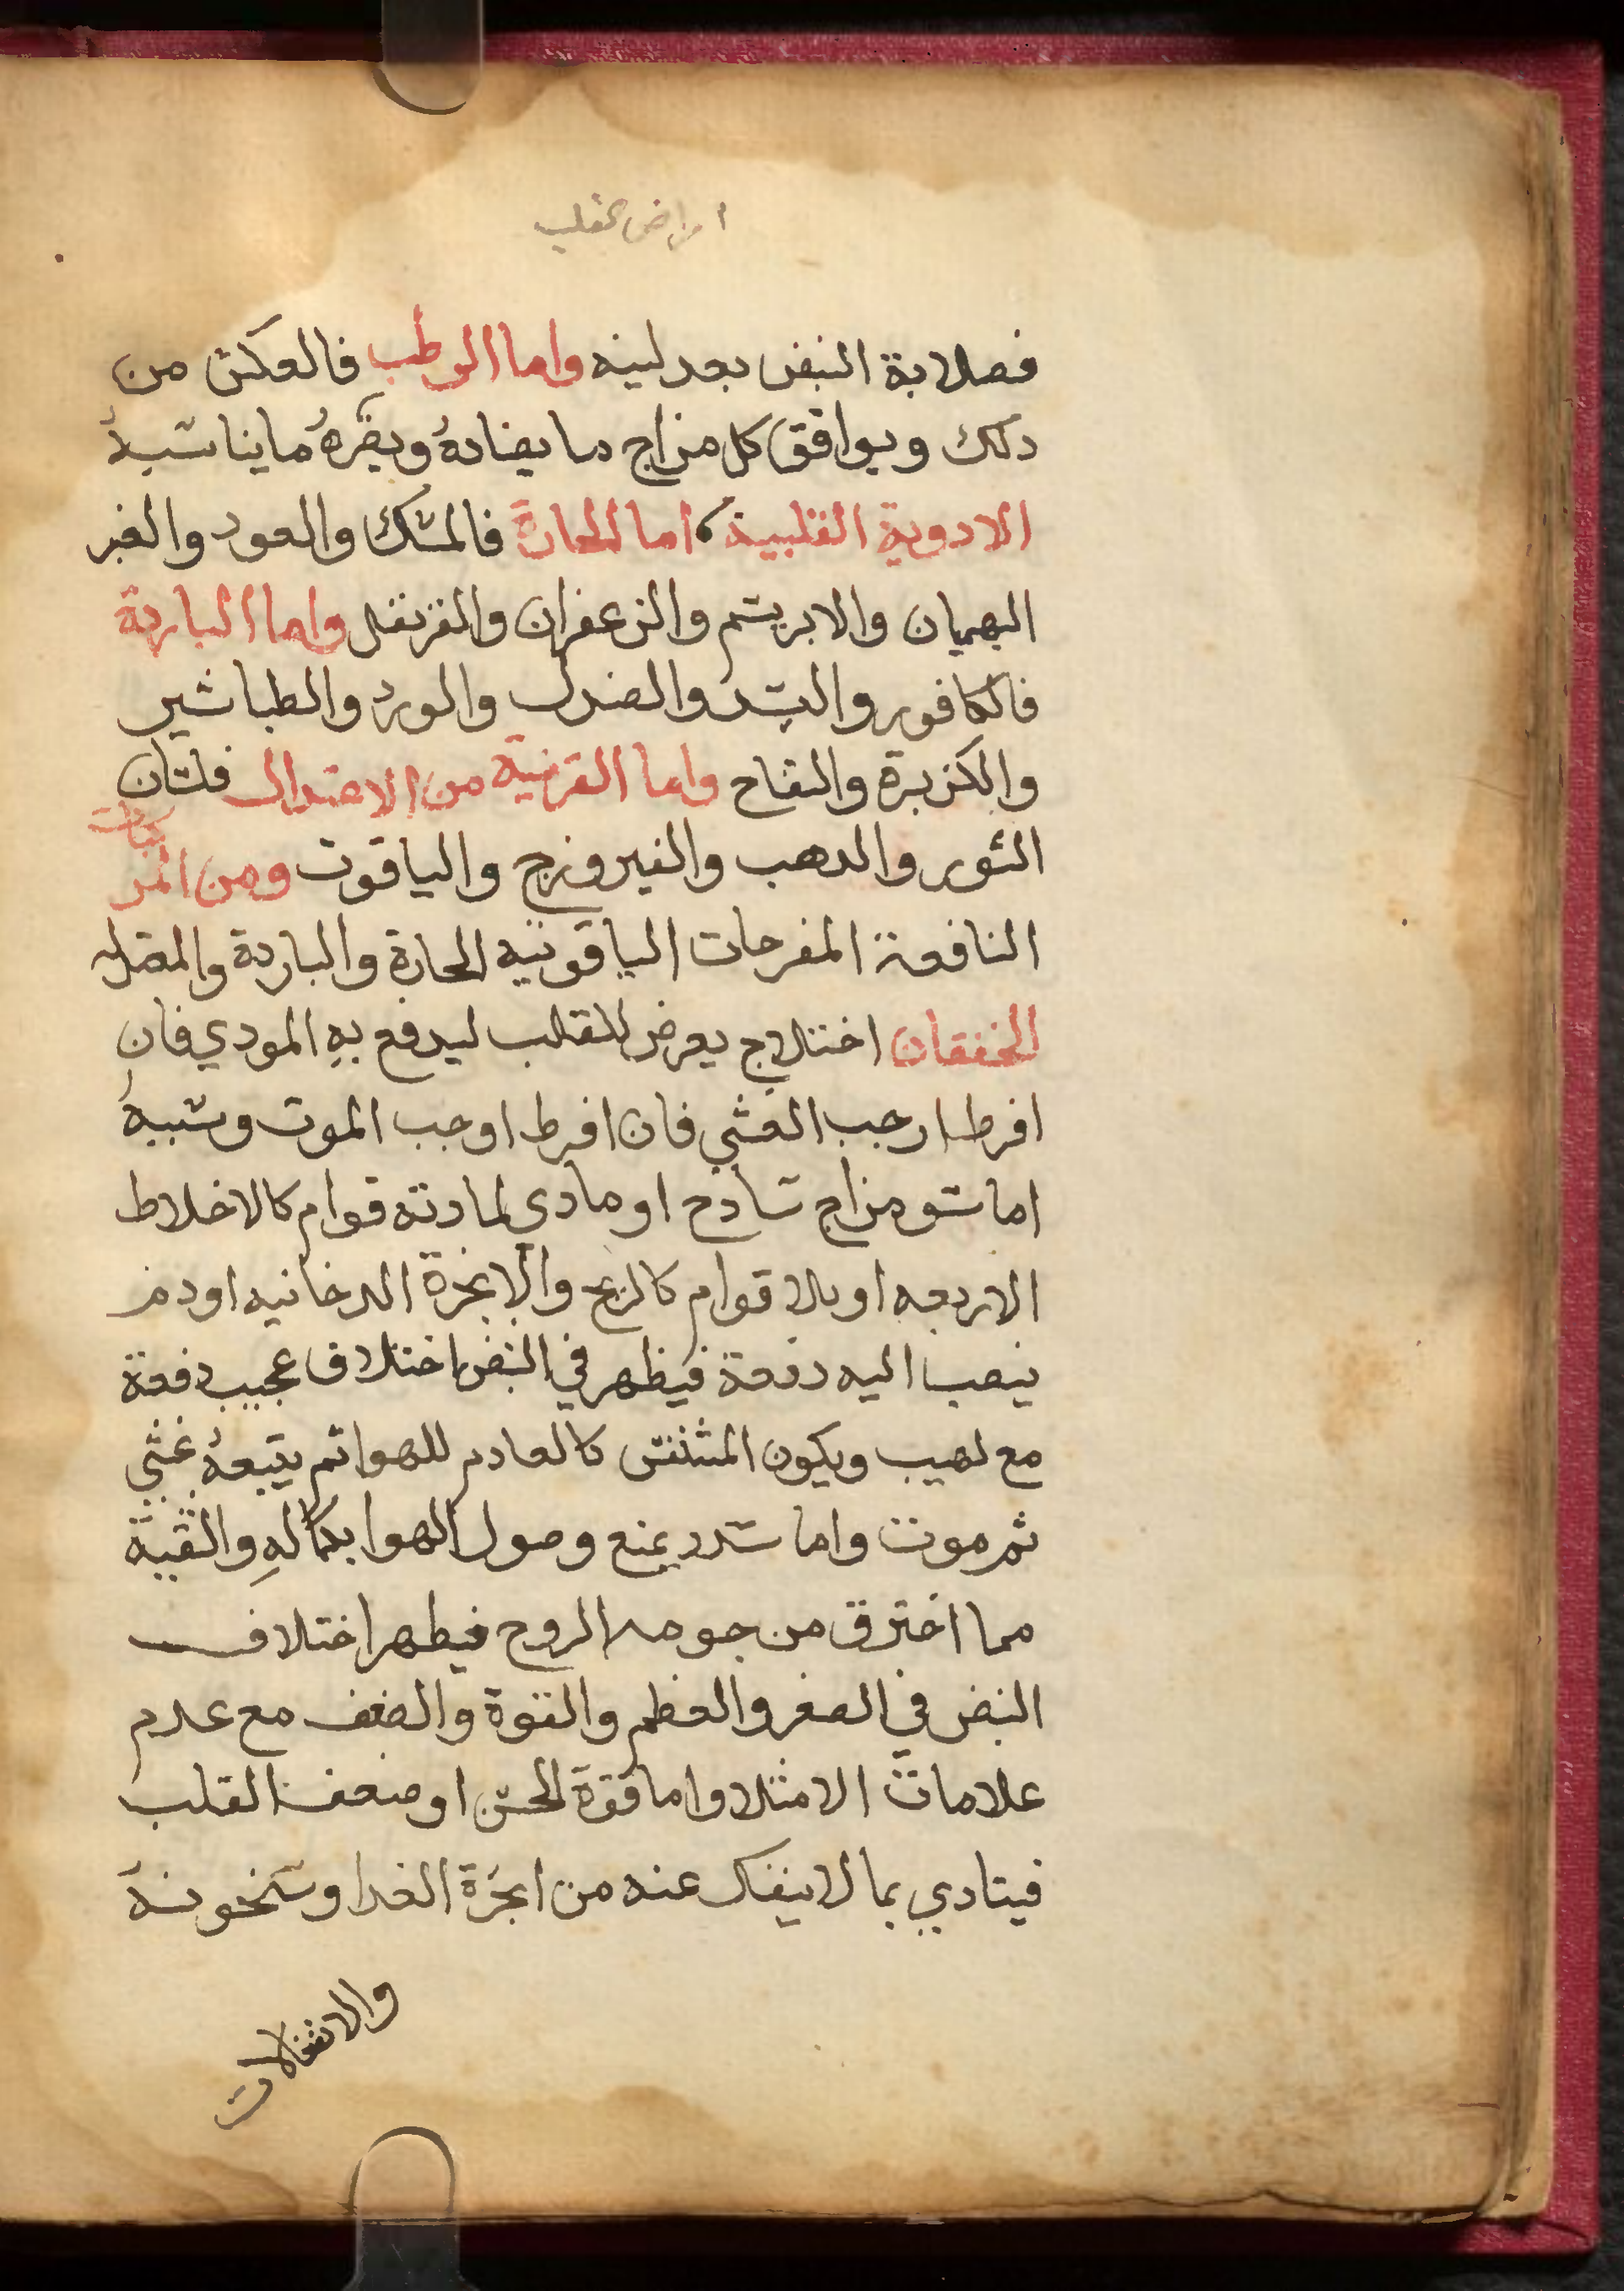 امراض القلب
فصلابة النبض بعد لينه واما الرطب فالعكس من
دلك ويوافق كل مزاج ما يضاده ويضره ما يناسبه
الادوية القلبية اما الحارة فالمسك والعود والعنبر
البهمان والابريسم والزعفران والقرنفل واما الباردة
فالكافور والبسد والصندل والورد والطباشير
والكزبرة والتفاح واما القريبة من الاعتدال فلسان
الثور والدهب والفيروزج والياقوت ومن المركبات
النافعة المفرحات الياقوتيه الحارة والباردة والمعتدله
الخفقان اختلاج يعرض للقلب ليدفع به المودي فان
افرط اوجب الغشي فان افرط اوجب الموت وسببه
اما سو مزاج سادج او مادي لمادته قوام كالاخلاط
الاربعه او بلا قوام كالريح والابخرة الدخانيه او دم
ينصب اليه دفعة فيظهر في النبض اختلاف عجيب دفعة
مع لهيب ويكون المتنفس كالعادم للهوا ثم يتبعه غشي
ثم موت واما سدد يمنع وصول الهوا بكماله والتقيه
مما احترق من جوهر الروح فيظهر اختلاف
النبض في الصغر والعظم والقوة والضعف مع عدم
علامات الامتلا واما قوة الحس او ضعف القلب
فيتادي بما لا ينفك عنه من ابخرة الغدا وسخونة
والانفعالات